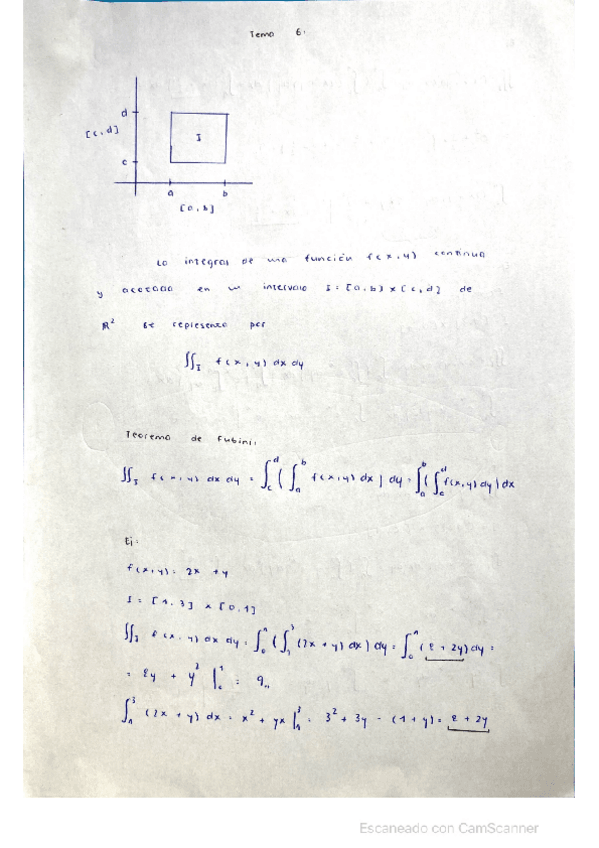 Tema 6:
d
[c, d]
I
c
a b
[a, b]
La integral de una función f(x, y) continua
y acotada en un intervalo I = [a, b] x [c, d] de
ℝ² se representa por
∬_I f(x, y) dx dy
Teorema de Fubini:
∬_I f(x, y) dx dy = ∫_c^d ( ∫_a^b f(x, y) dx ) dy = ∫_a^b ( ∫_c^d f(x, y) dy ) dx
Ej:
f(x, y) = 2x + y
I = [1, 3] x [0, 1]
∬_I f(x, y) dx dy = ∫_0^1 ( ∫_1^3 (2x + y) dx ) dy = ∫_0^1 (8 + 2y) dy =
= 8y + y² |_0^1 = 9,,
∫_1^3 (2x + y) dx = x² + yx |_1^3 = 3² + 3y - (1 + y) = 8 + 2y
Escaneado con CamScanner